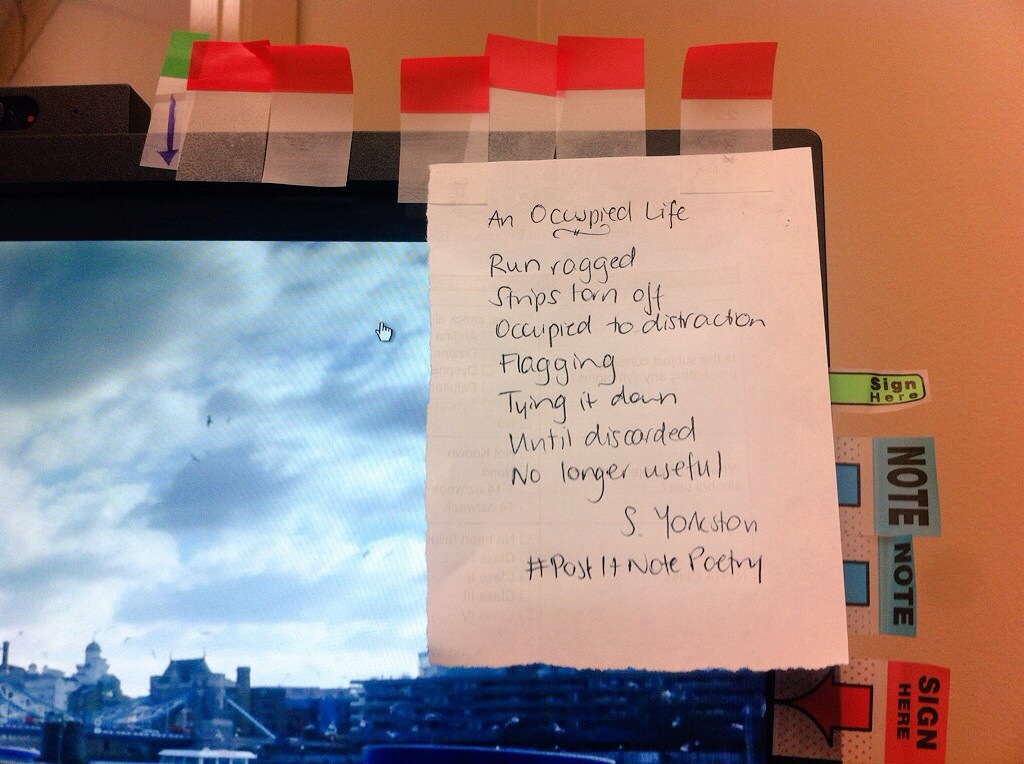 An Occupied Life
Run ragged
Strips torn off
Occupied to distraction
Flagging
Tying it down
Until discarded
No longer useful
S. Yorkston
#PostItNotePoetry
Sign
Here
NOTE
NOTE
SIGN
HERE